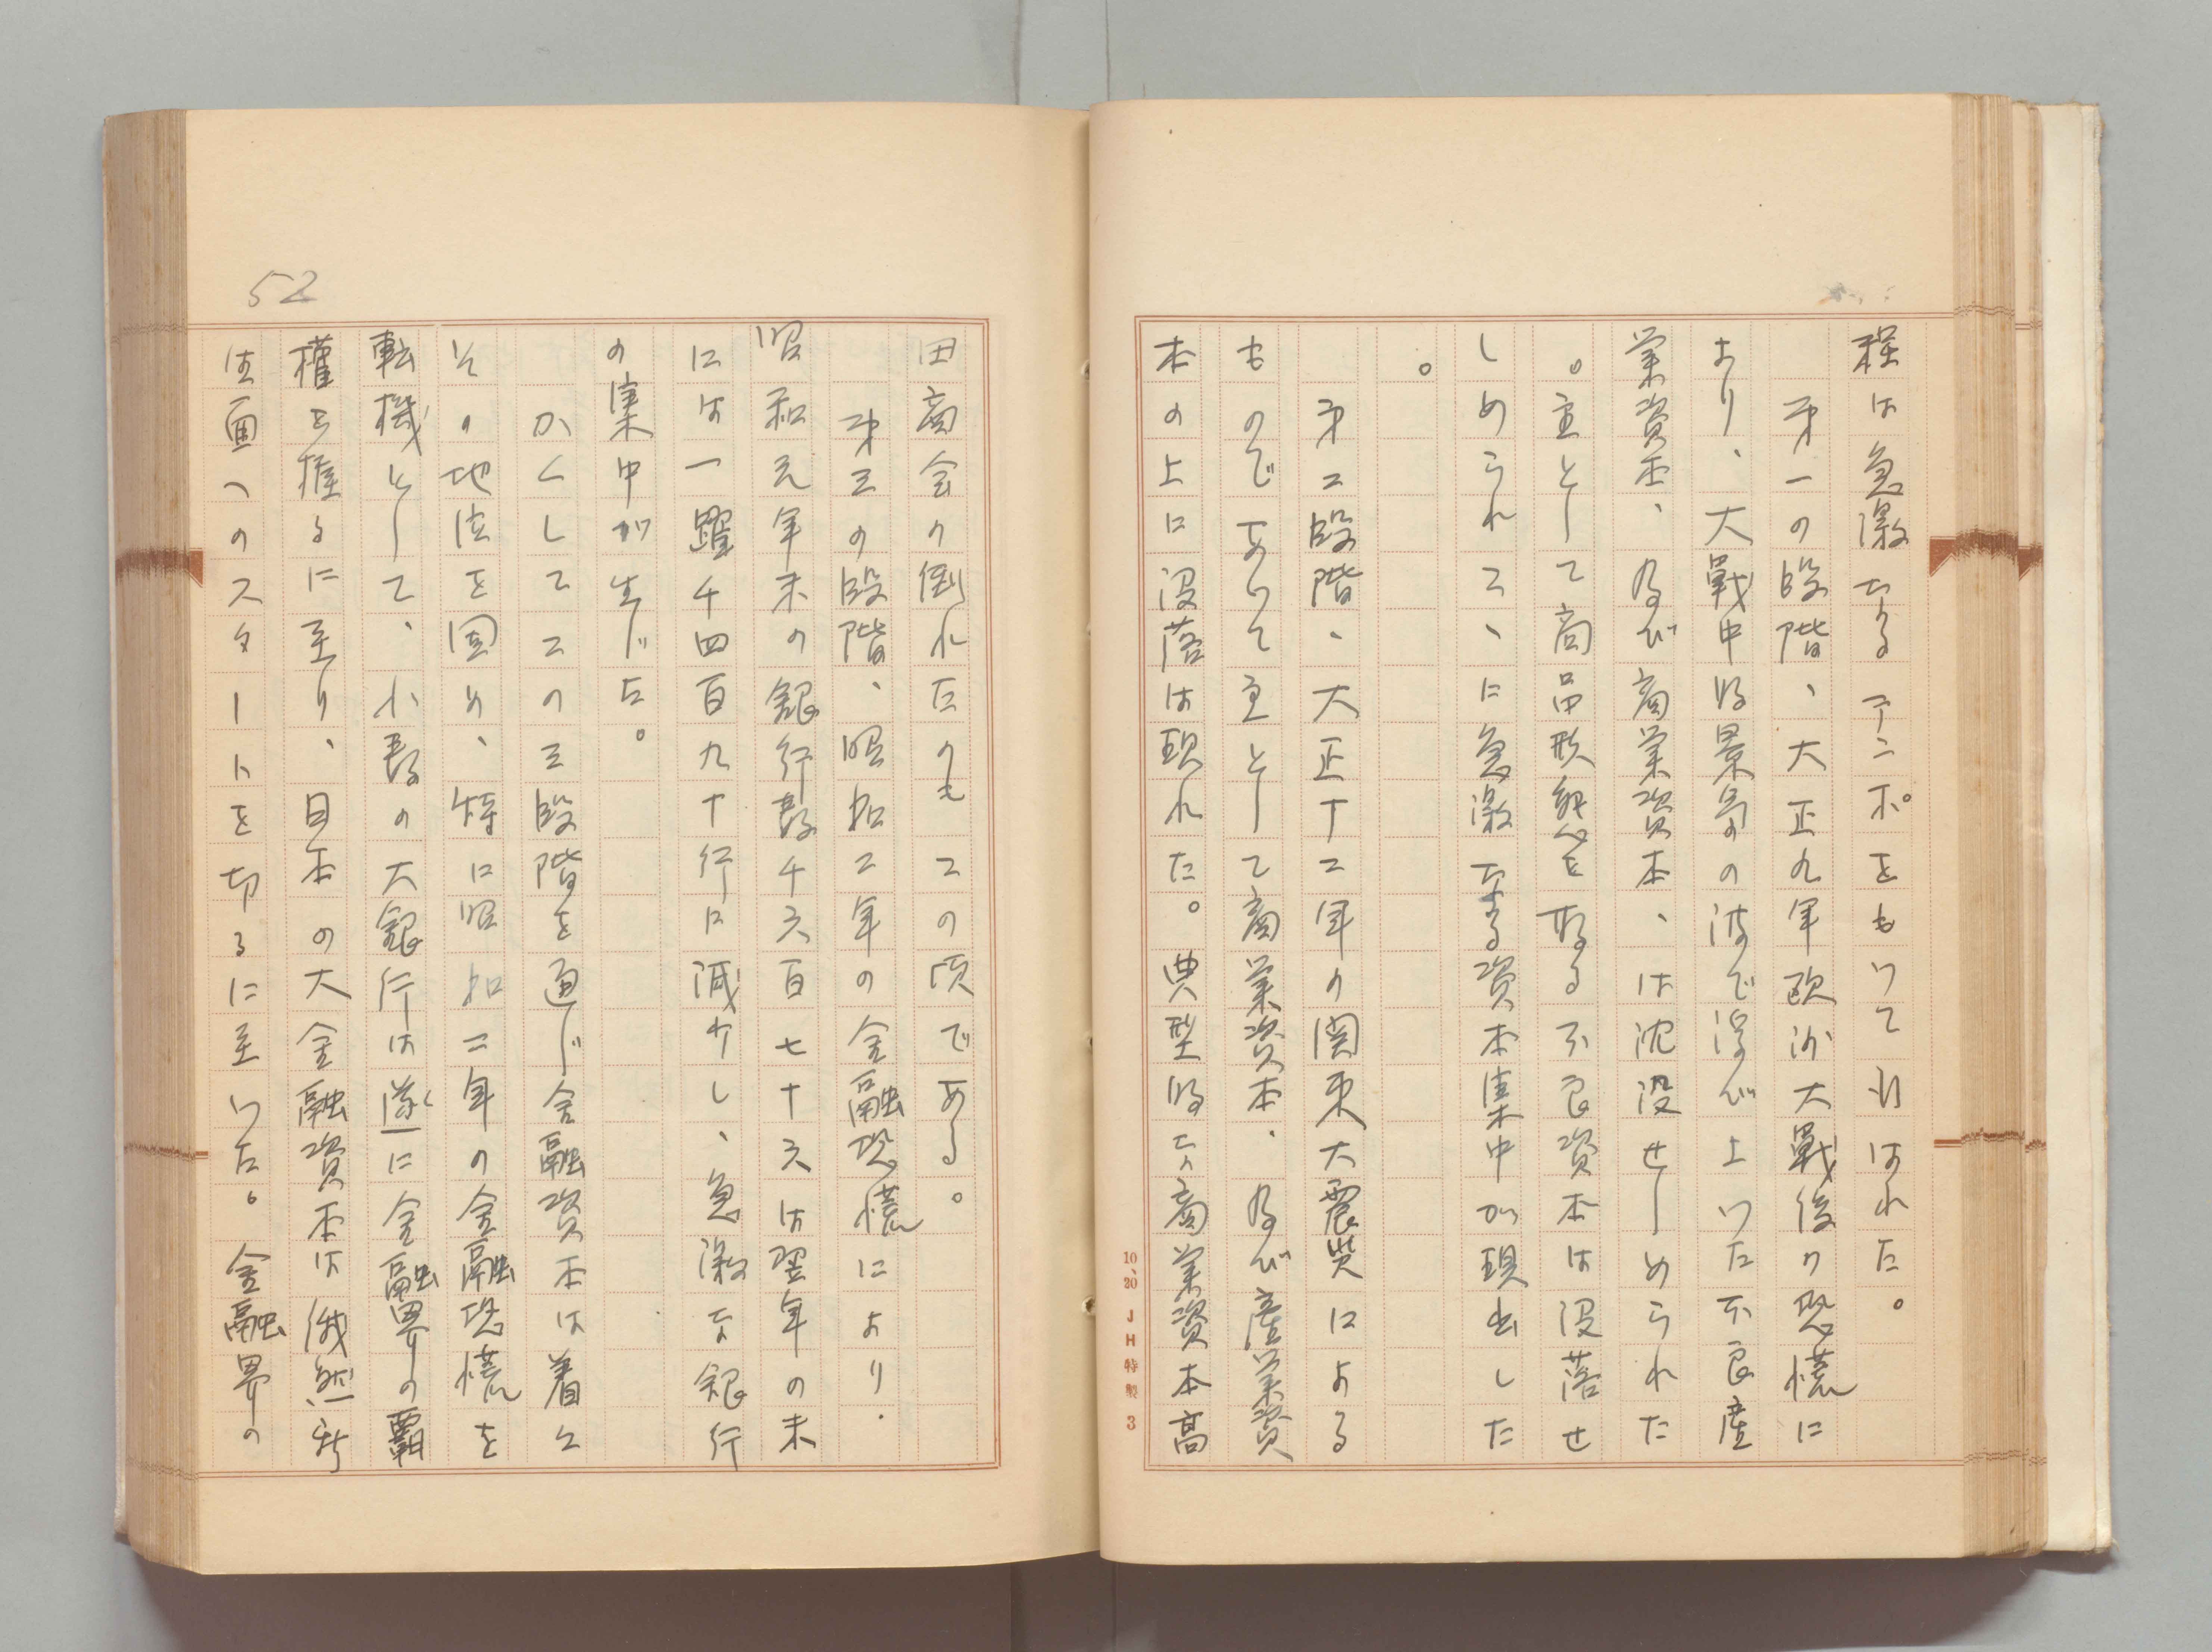 程は急激なるテンポをもって行はれた。
第一の段階、大正九年欧洲大戦後の恐慌に
より、大戦中好景気の波で浮び上った不良産
業資本、及び商業資本、は沈没せしめられた
。主として商品形態を取る不良資本は没落せ
しめられてここに急激なる資本集中が現出した
。
第二段階、大正十二年の関東大震災による
ものであって主として商業資本、及び産業資
本の上に没落は現れた。典型的な商業資本高
10、20 JH特製 3
田商会の倒れたのもこの頃である。
第三の段階、昭和二年の金融恐慌により、
昭和元年末の銀行数千六百七十六は翌年の末
には一躍千四百九十行に減少し、急激な銀行
の集中が生じた。
かくしてこの三段階を通じ金融資本は着々
その地位を固め、特に昭和二年の金融恐慌を
転機として、小数の大銀行は遂に金融界の覇
権を握るに至り、日本の大金融資本は俄然新
生面へのスタートを切るに至った。金融界の
52